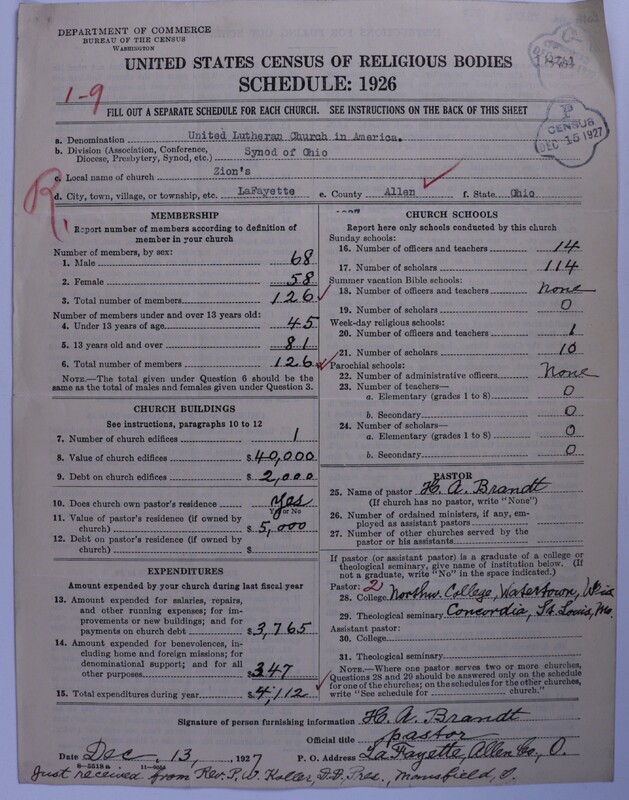 DEPARTMENT OF COMMERCE
BUREAU OF THE CENSUS
WASHINGTON
UNITED STATES CENSUS OF RELIGIOUS BODIES
SCHEDULE: 1926
1-9
FILL OUT A SEPARATE SCHEDULE FOR EACH CHURCH. SEE INSTRUCTIONS ON THE BACK OF THIS SHEET
P
CENSUS
DEC 15 1927
a. Denomination United Lutheran Church in America.
b. Division (Association, Conference,
Diocese, Presbytery, Synod, etc.) Synod of Ohio
c. Local name of church Zion's
d. City, town, village, or township, etc. LaFayette e. County Allen f. State Ohio
R
MEMBERSHIP
Report number of members according to definition of
member in your church
Number of members, by sex:
1. Male 68
2. Female 58
3. Total number of members 126
Number of members under and over 13 years old:
4. Under 13 years of age 45
5. 13 years old and over 81
6. Total number of members 126
NOTE.—The total given under Question 6 should be
same as the total of males and females given under Question 3.
CHURCH BUILDINGS
See instructions, paragraphs 10 to 12
7. Number of church edifices 1
8. Value of church edifices $40,000
9. Debt on church edifices $2,000
10. Does church own pastor's residence Yes
Yes or No
11. Value of pastor's residence (if owned by
church) $5,000
12. Debt on pastor's residence (if owned by
church) $
EXPENDITURES
Amount expended by your church during last fiscal year
13. Amount expended for salaries, repairs,
and other running expenses; for im-
provements or new buildings; and for
payments on church debt $3,765
14. Amount expended for benevolences, in-
cluding home and foreign missions; for
denominational support; and for all
other purposes $347
15. Total expenditures during year $4,112
CHURCH SCHOOLS
Report here only schools conducted by this church
Sunday schools:
16. Number of officers and teachers 14
17. Number of scholars 114
Summer vacation Bible schools:
18. Number of officers and teachers None
19. Number of scholars 0
Week-day religious schools:
20. Number of officers and teachers 1
21. Number of scholars 10
Parochial schools:
22. Number of administrative officers None
23. Number of teachers—
a. Elementary (grades 1 to 8) 0
b. Secondary 0
24. Number of scholars—
a. Elementary (grades 1 to 8) 0
b. Secondary 0
PASTOR
25. Name of pastor H. A. Brandt
(If church has no pastor, write "None")
26. Number of ordained ministers, if any, em-
ployed as assistant pastors
27. Number of other churches served by the
pastor or his assistants
If pastor (or assistant pastor) is a graduate of a college or
theological seminary, give name of institution below. (If
not a graduate, write "No" in the space indicated.)
Pastor: 2
28. College Northw. College, Watertown, Wis.
29. Theological seminary Concordia, St. Louis, Mo.
Assistant pastor:
30. College
31. Theological seminary
NOTE.—Where one pastor serves two or more churches,
Questions 28 and 29 should be answered only on the schedule
for one of the churches; on the schedules for the other churches,
write "See schedule for church."
Signature of person furnishing information H. A. Brandt
Official title pastor
Date Dec. 13, 1927 P. O. Address La Fayette, Allen Co., O.
Just received from Rev. P. W. Koller, D.D., Pres., Mansfield, O.